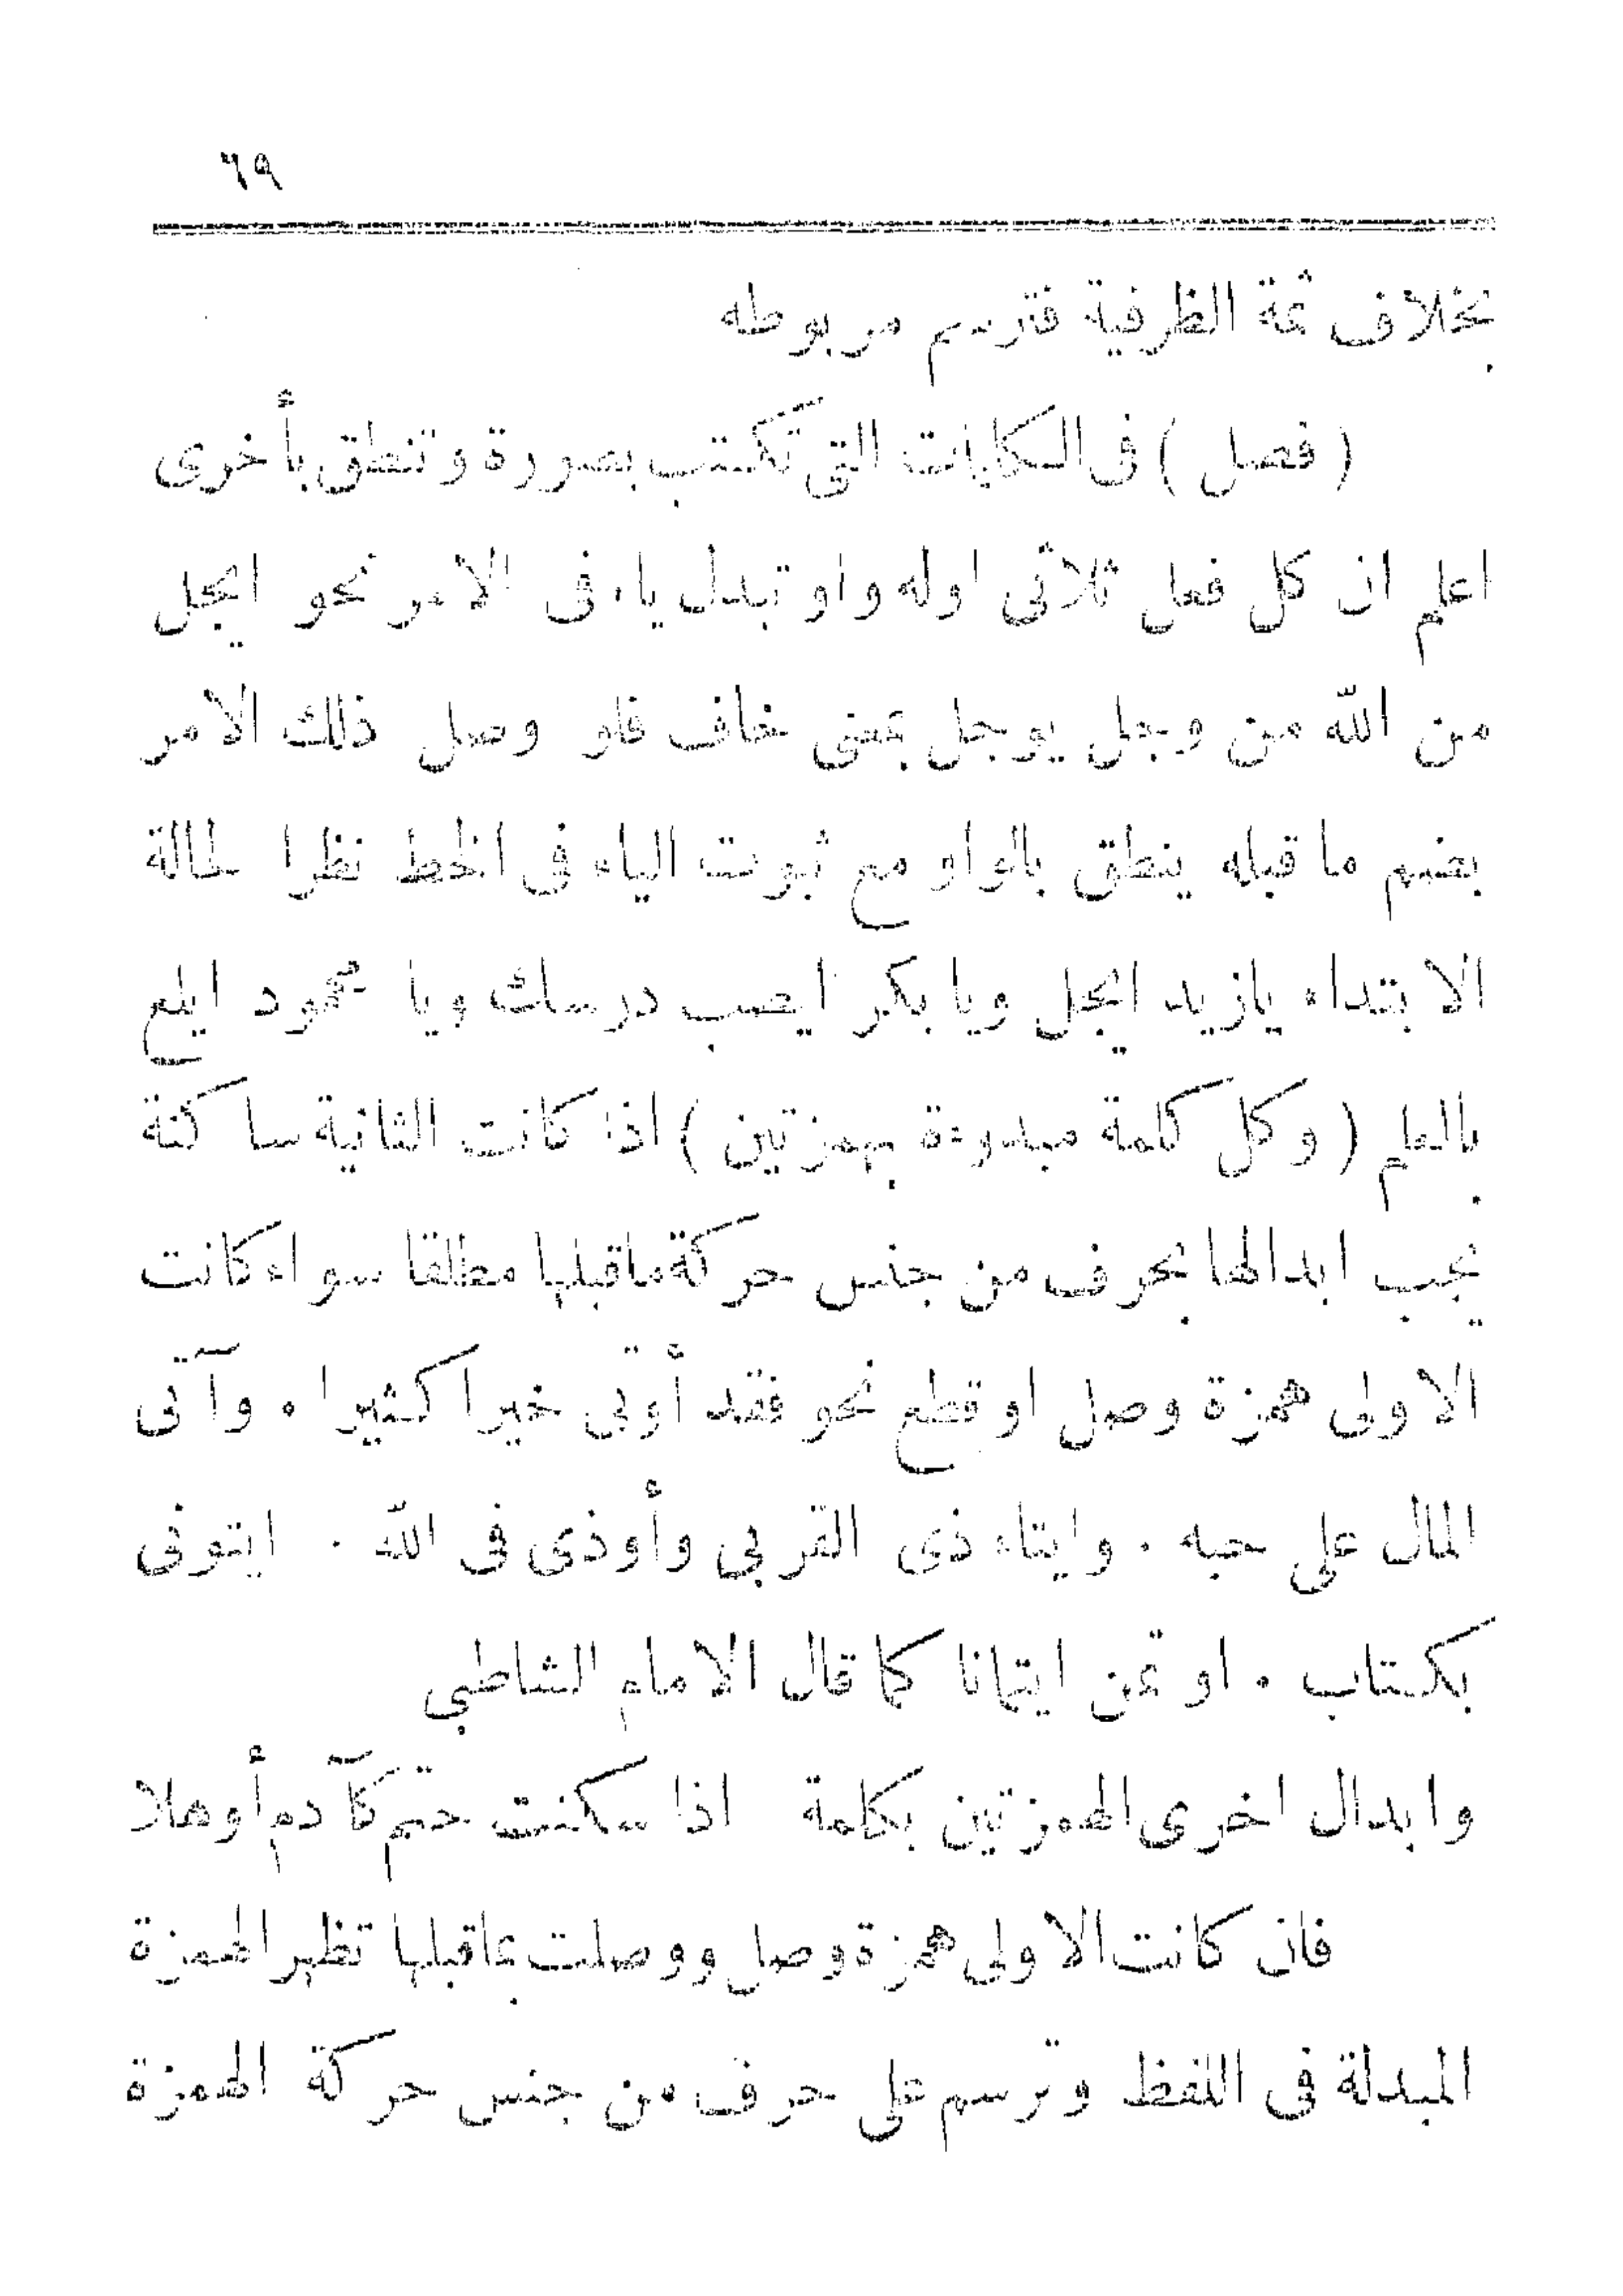 ٦٩
بخلاف ثمة الظرفية فترسم مربوطه
( فصل ) فى الكلمات التى تكتب بصورة وتنطق بأخرى
اعلم ان كل فعل ثلاثى اوله واو تبدل ياء فى الامر نحو ايجل
من اللّه من وجل يوجل بمعنى خاف فلو وصل ذلك الامر
بضم ما قبله ينطق بالواو مع ثبوت الياء فى الخط نظرا لحالة
الابتداء يازيد ايجل ويا بكر ايصب درسك ويا محمود ايلع
بالعلم ( وكل كلمة مبدوءة بهمزتين ) اذا كانت الثانية ساكنة
يجب ابدالها بحرف من جنس حركة ماقبلها مطلقا سواء كانت
الاولى همزة وصل او قطع نحو فقد أوتى خيرا كثيرا . وآتى
المال على حبه . وايتاء ذى القربى وأوذى فى اللّه . ايتونى
بكتاب . اوتمن ايتمانا كما قال الامام الشاطبى
وابدال اخرى الهمزتين بكلمة اذا سكنت حتم كآدم أوهلا
فان كانت الاولى همزة وصل ووصلت بماقبلها تظهر الهمزة
المبدلة فى اللفظ وترسم على حرف من جنس حركة الهمزة